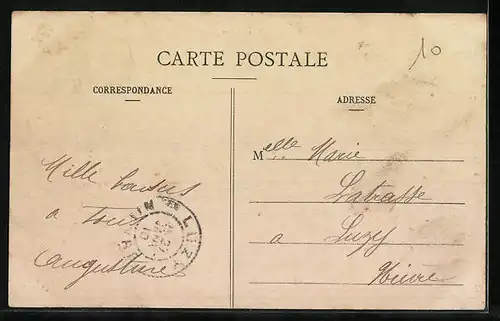 CARTE POSTALE
10
CORRESPONDANCE
ADRESSE
Melle Marie
Latrasse
a Luzy
Nièvre
Mille baisers
a tous
Augustine
LUZY